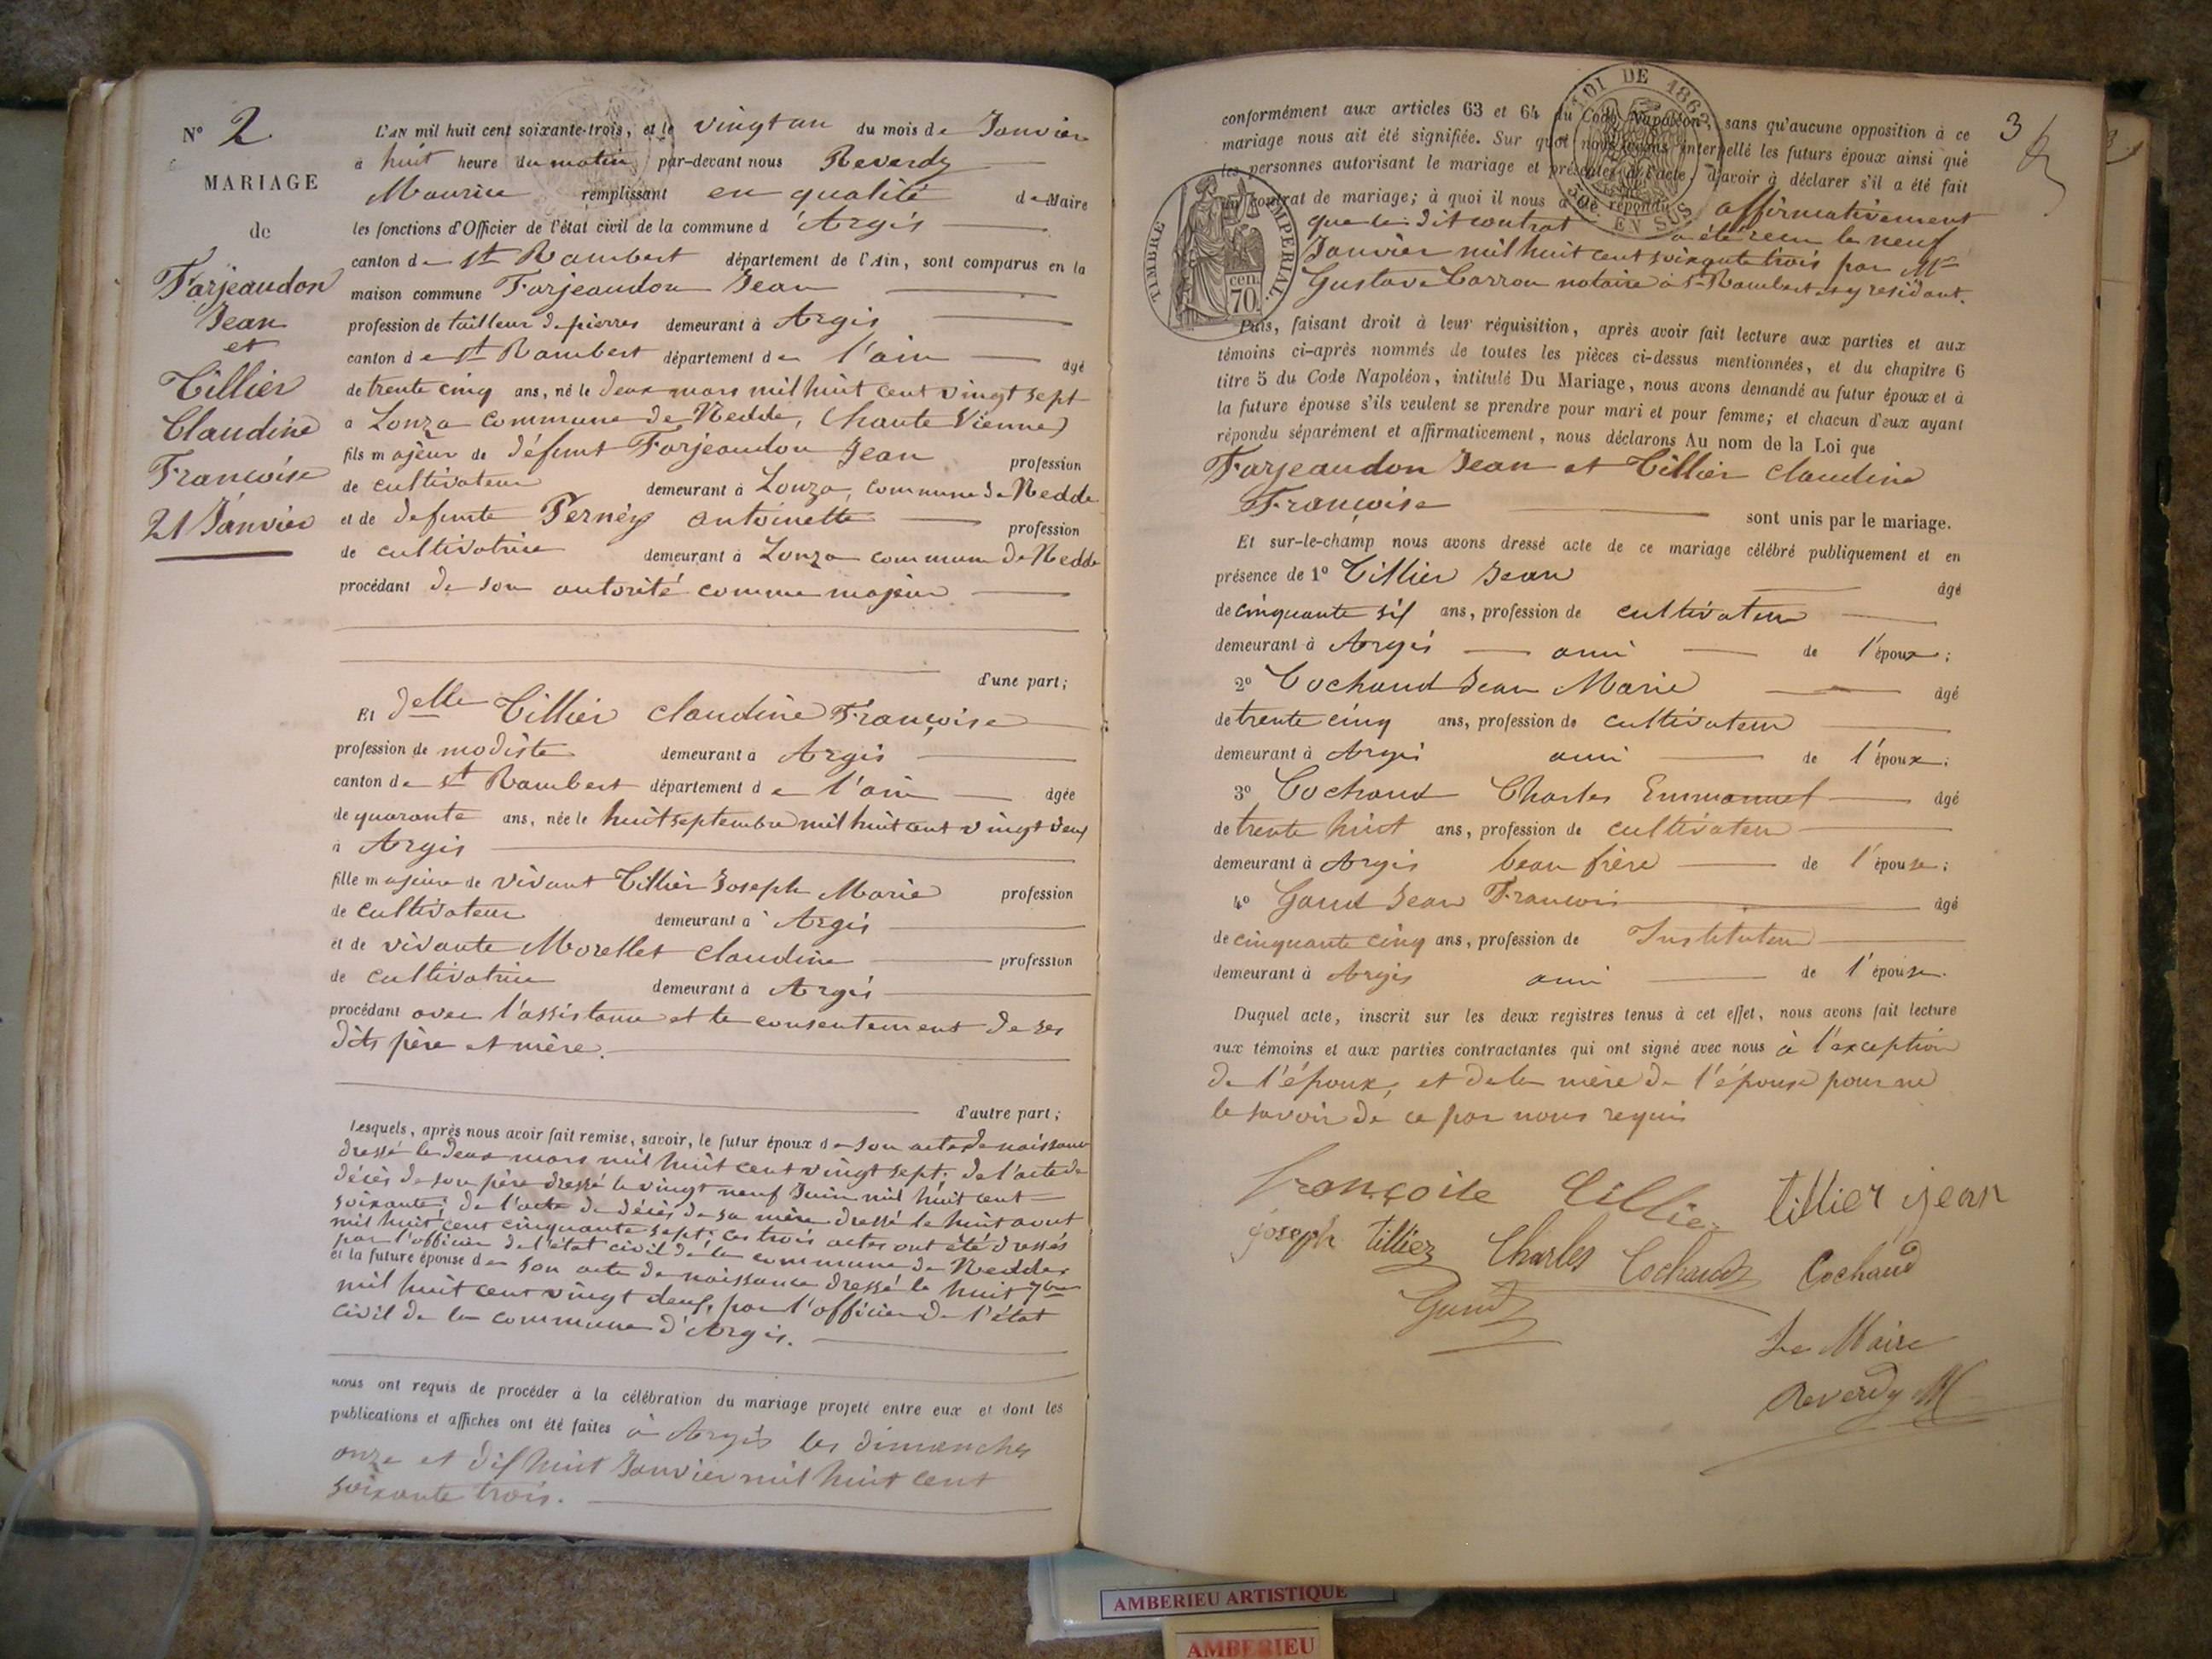 N° 2
MARIAGE
de
Farjeaudon
Jean
et
Tillier
Claudine
Françoise
21 Janvier
L'AN mil huit cent soixante-trois, et le vingt un du mois de Janvier
à huit heure du matin par-devant nous Reverdy
Maurice remplissant en qualité de Maire
les fonctions d'Officier de l'état civil de la commune d'Argis
canton de St Rambert département de l'Ain, sont comparus en la
maison commune Farjeaudon Jean
profession de tailleur de pierres demeurant à Argis
canton de St Rambert département de l'ain âgé
de trente cinq ans, né le deux mars mil huit cent vingt sept
à Lonza commune de Nedde, (haute Vienne)
fils majeur de défunt Farjeaudon Jean profession
de cultivateur demeurant à Lonza, commune de Nedde
et de defunte Perney antoinette profession
de cultivatrice demeurant à Lonza commune de Nedde
procédant de son autorité comme majeur
d'une part;
Et delle Tillier claudine Françoise
profession de modiste demeurant à Argis
canton de St Rambert département de l'ain âgée
de quarante ans, née le huit septembre mil huit cent vingt deux
à Argis
fille majeure de vivant Tillier Joseph Marie profession
de cultivateur demeurant à Argis
et de vivante Morellet claudine profession
de cultivatrice demeurant à Argis
procédant avec l'assistance et le consentement de ses
dits père et mère.
d'autre part;
Lesquels, après nous avoir fait remise, savoir, le futur époux de son acte de naissance
dressé le deux mars mil huit cent vingt sept; de l'acte de
décès de son père dressé le vingt neuf Juin mil huit cent
soixante; de l'acte de décès de sa mère dressé le huit aout
mil huit cent cinquante sept; ces trois actes ont été dressés
par l'officier de l'état civil de la commune de Nedde,
et la future épouse de son acte de naissance dressé le huit 7bre
mil huit cent vingt deux, par l'officier de l'état
civil de la commune d'Argis.
nous ont requis de procéder à la célébration du mariage projeté entre eux et dont les
publications et affiches ont été faites à Argis les dimanches
onze et dix huit Janvier mil huit cent
soixante trois.
3
LOI DE 1862
50 EN SUS
TIMBRE IMPÉRIAL.
70 cen.
conformément aux articles 63 et 64 du Code Napoléon, sans qu'aucune opposition à ce
mariage nous ait été signifiée. Sur quoi nous avons interpellé les futurs époux ainsi que
les personnes autorisant le mariage et présentes à l'acte, d'avoir à déclarer s'il a été fait
un contrat de mariage; à quoi il nous a été répondu affirmativement
que le dit contrat a été recu le neuf
Janvier mil huit cent soixante trois par Me
Gustave Carron notaire à St Rambert y résidant.
Puis, faisant droit à leur réquisition, après avoir fait lecture aux parties et aux
témoins ci-après nommés de toutes les pièces ci-dessus mentionnées, et du chapitre 6
titre 5 du Code Napoléon, intitulé Du Mariage, nous avons demandé au futur époux et à
la future épouse s'ils veulent se prendre pour mari et pour femme; et chacun d'eux ayant
répondu séparément et affirmativement, nous déclarons Au nom de la Loi que
Farjeaudon Jean et Tillier claudine
Françoise sont unis par le mariage.
Et sur-le-champ nous avons dressé acte de ce mariage célébré publiquement et en
présence de 1° Tillier Jean âgé
de cinquante six ans, profession de cultivateur
demeurant à Argis ami de l'époux;
2° Cochaud Jean Marie âgé
de trente cinq ans, profession de cultivateur
demeurant à Argis ami de l'époux;
3° Cochaud Charles Emmanuel âgé
de trente huit ans, profession de cultivateur
demeurant à Argis beau frère de l'épouse;
4° Gaud Jean Francois âgé
de cinquante cinq ans, profession de Instituteur
demeurant à Argis ami de l'épouse.
Duquel acte, inscrit sur les deux registres tenus à cet effet, nous avons fait lecture
aux témoins et aux parties contractantes qui ont signé avec nous à l'exception
de l'époux, et de la mère de l'épouse pour ne
le savoir de ce par nous requis
françoise Tillier tillier jean
joseph tillier Charles Cochaud Cochaud
Gaud
Le Maire
Reverdy M
AMBERIEU ARTISTIQUE
AMBERIEU